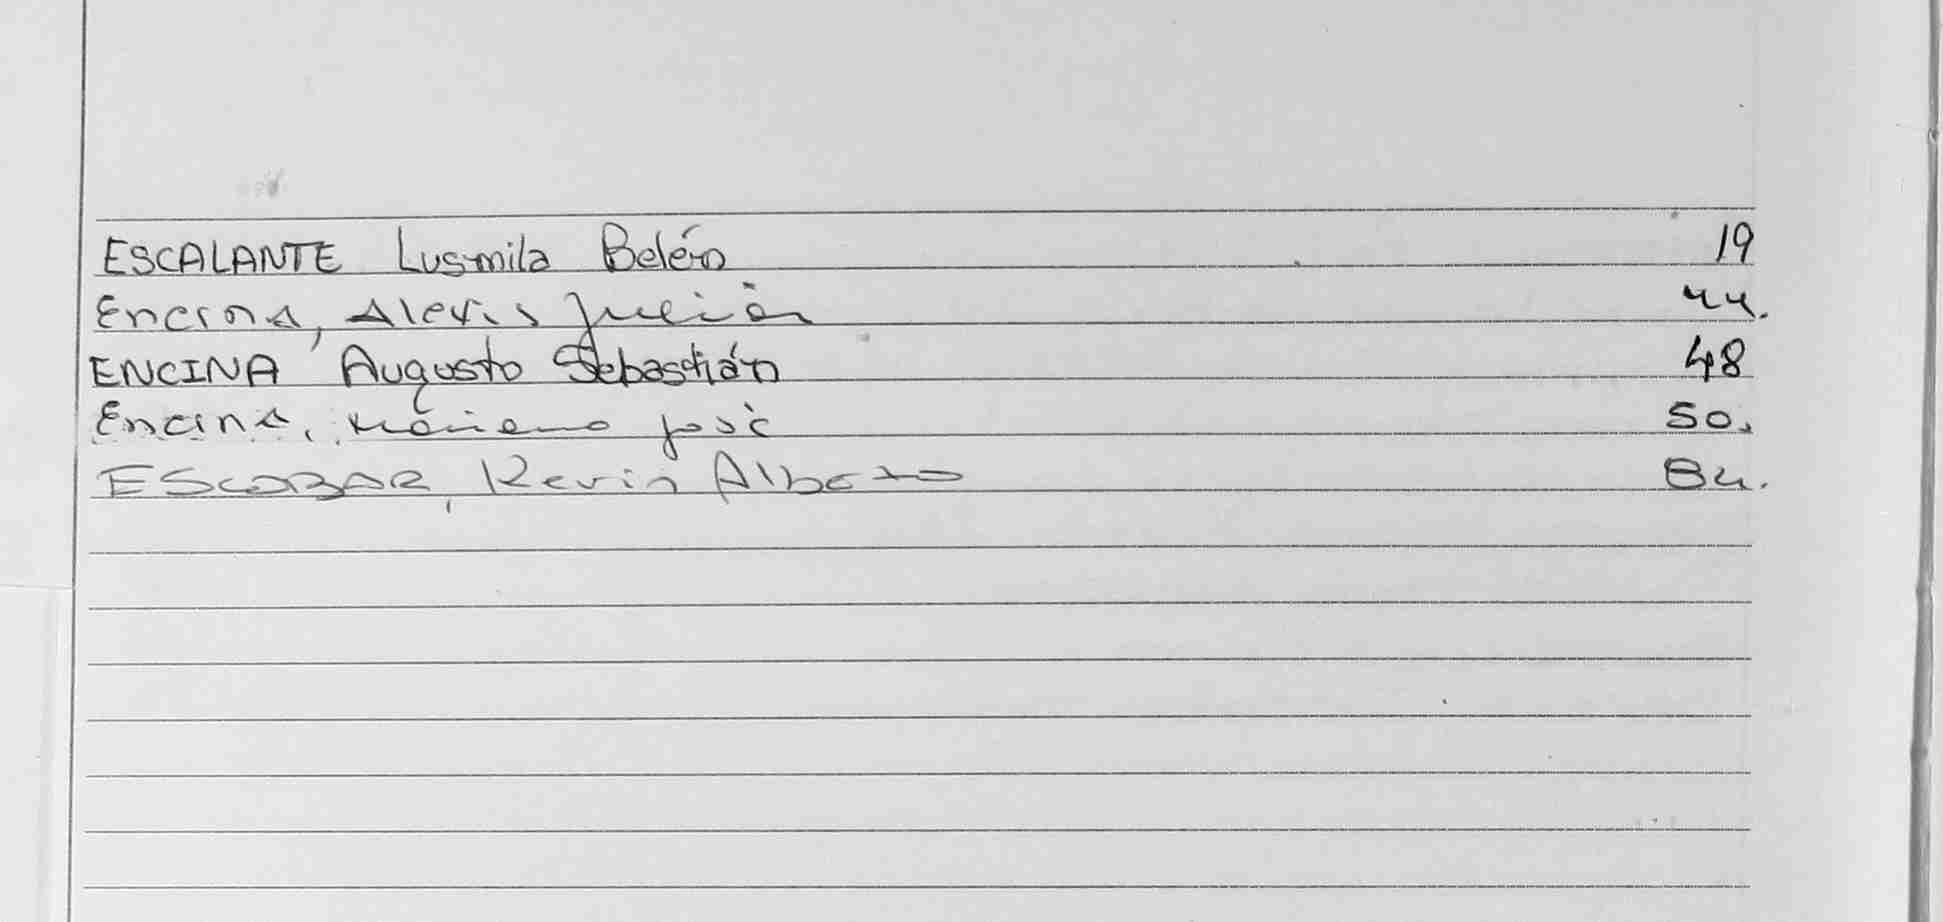 ESCALANTE Lusmila Belén 19
Encina, Alexis Julián 44.
ENCINA Augusto Sebastián 48
Encina, Mariano José 50.
ESCOBAR, Kevin Alberto 84.